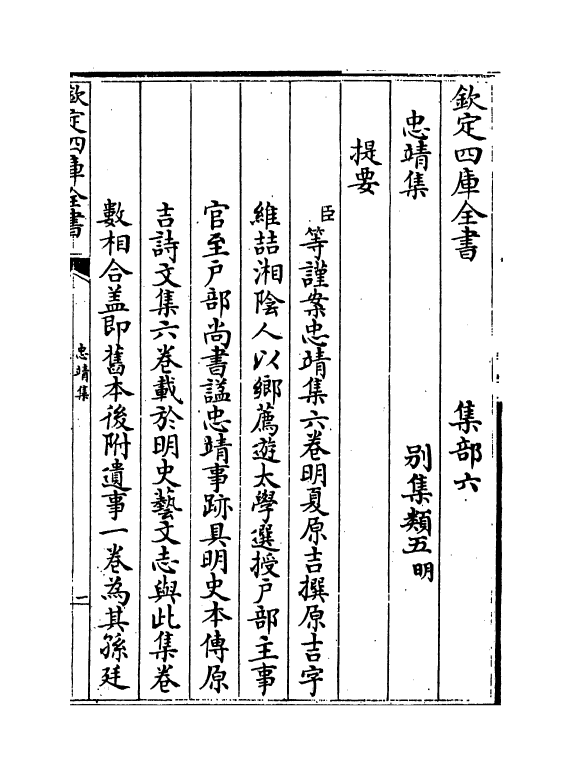 欽定四庫全書　集部六
忠靖集　別集類五明
提要
臣等謹案忠靖集六卷明夏原吉撰原吉字
維喆湘陰人以鄉薦遊太學選授戶部主事
官至戶部尚書諡忠靖事跡具明史本傳原
吉詩文集六卷載於明史藝文志與此集卷
數相合蓋即舊本後附遺事一卷為其孫廷
欽定四庫全書
忠靖集
一